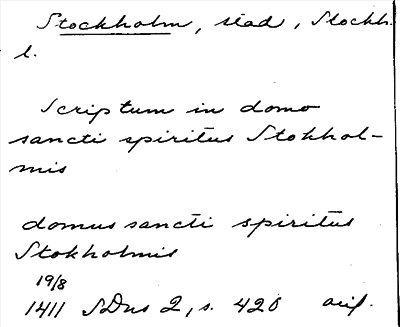 Stockholm, stad, Stockh.
l.
Scriptum in domo
sancti spiritus Stokhol-
mis
domus sancti spiritus
Stokholmis
19/8
1411 SDns 2, s. 420 avs.